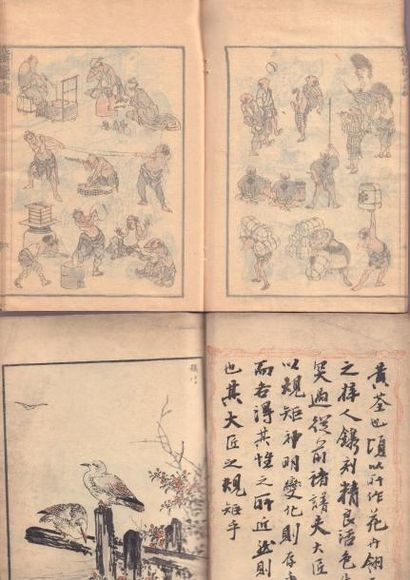 黄荃也頃以所作花卉翎
之梓人鐫刻精良設色
突過從前諸譜夫大匠
以規矩神明變化則存
而各得其性之所近然則
也其大匠之規矩乎